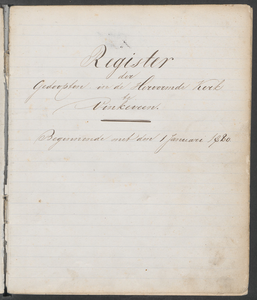 Register
der
Gedoopten in de Hervormde Kerk
te
Vinkeveen.
Beginnende met den 1 Januari 1920